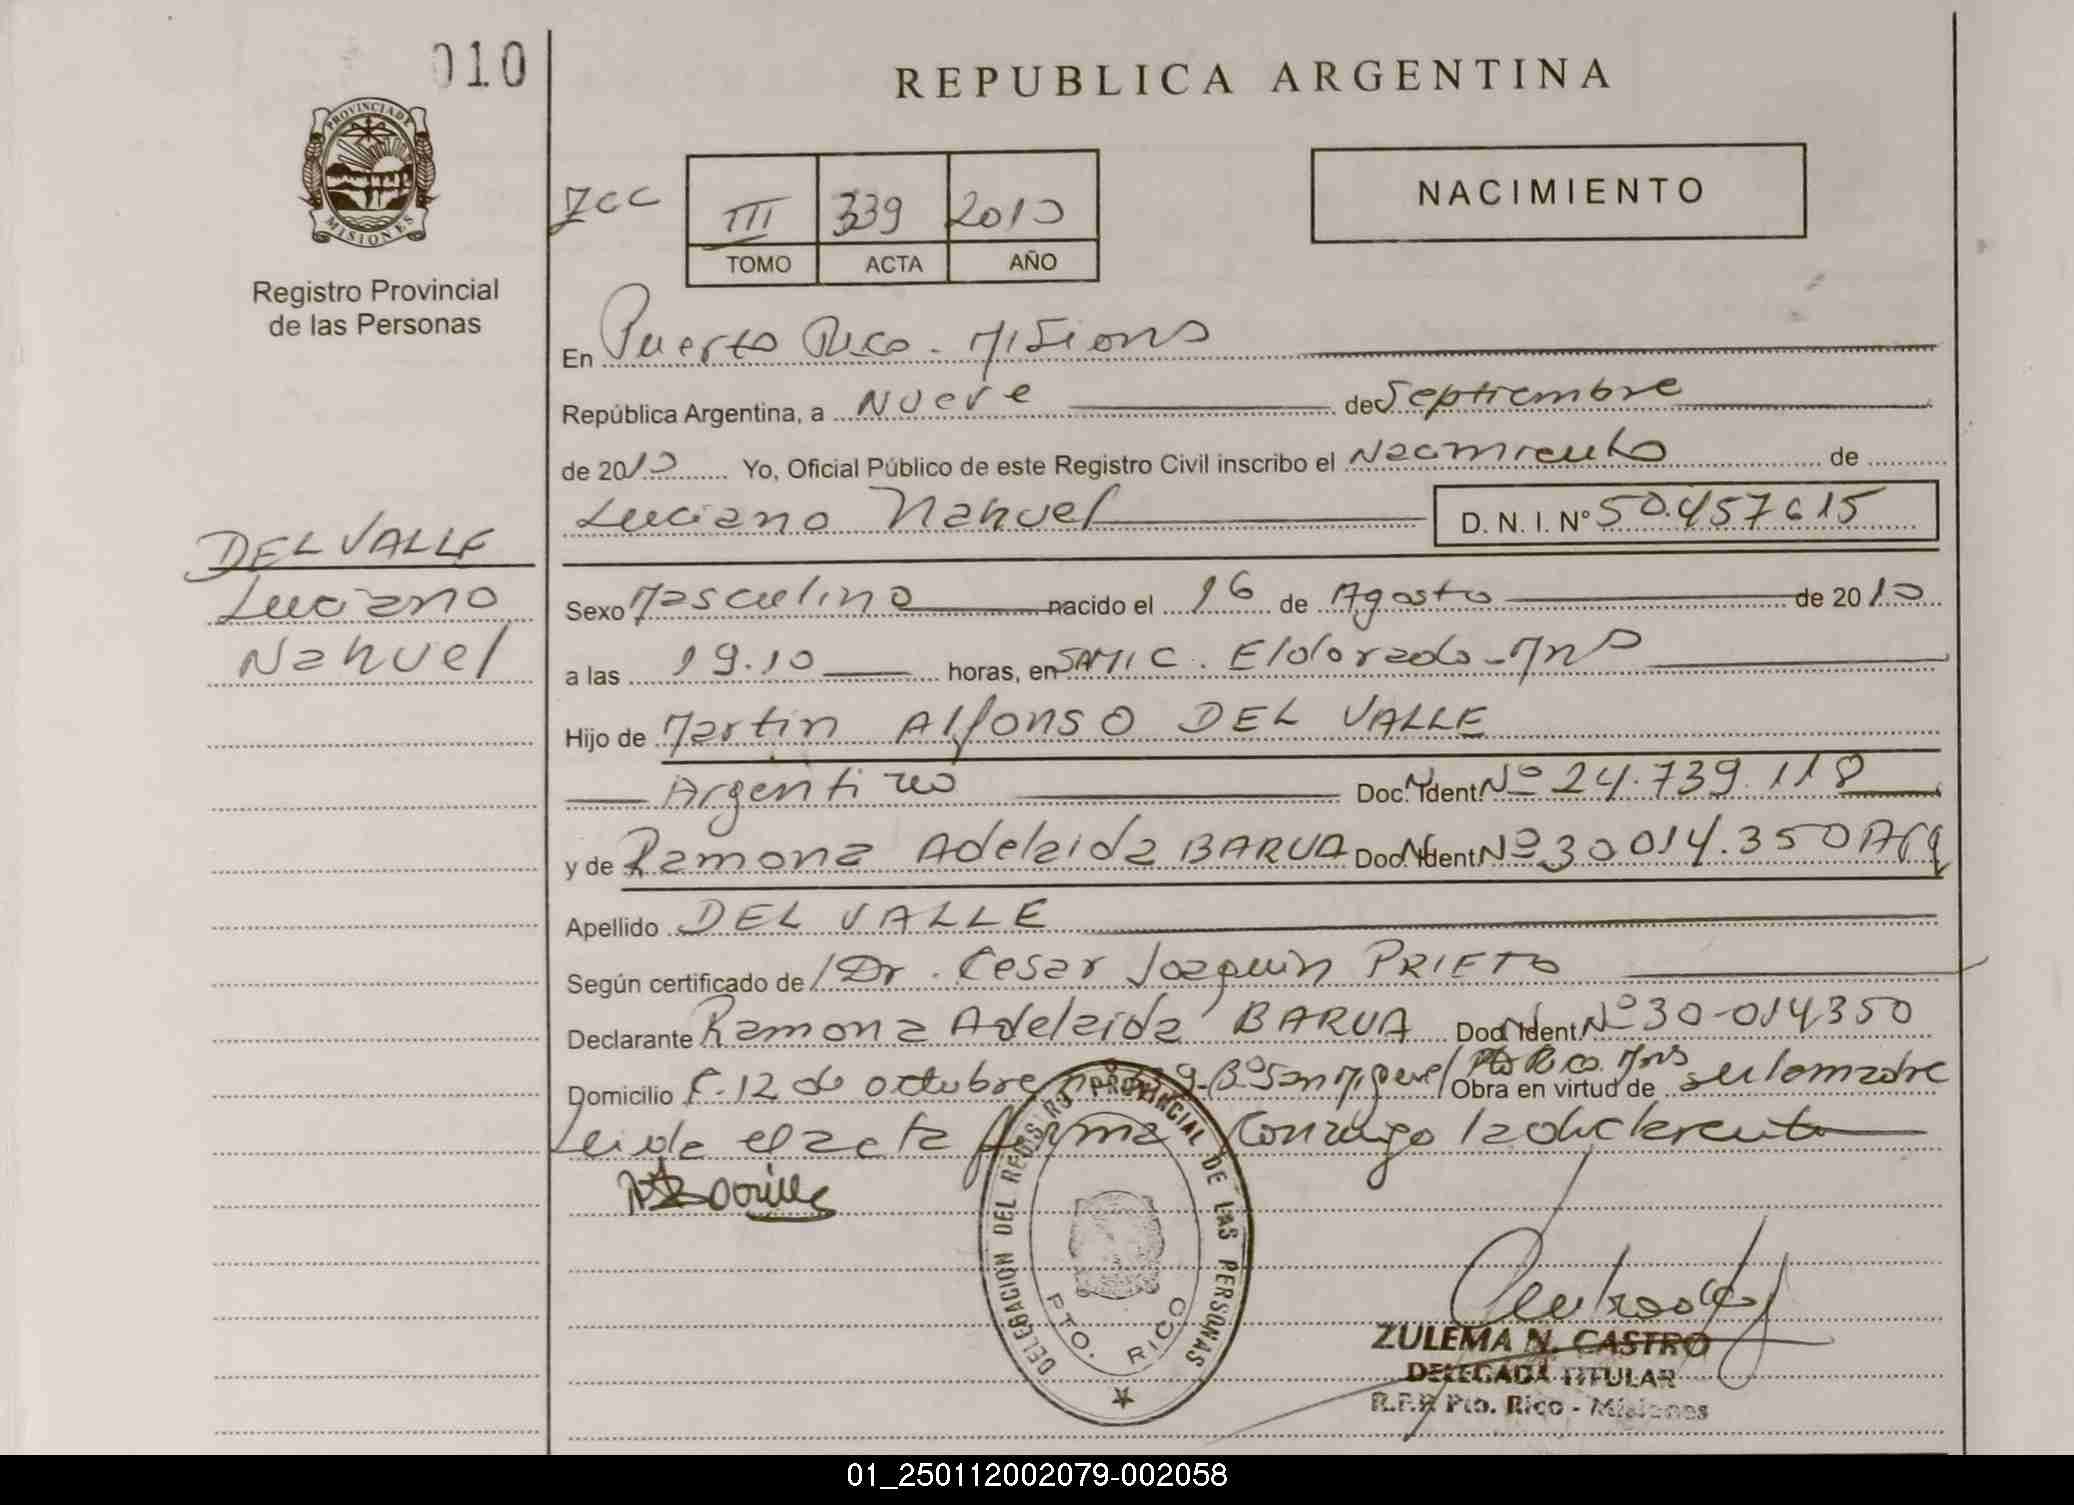 010
REPUBLICA ARGENTINA
PROVINCIA DE MISIONES
Registro Provincial
de las Personas
III 339 2010
TOMO ACTA AÑO
NACIMIENTO
En Puerto Rico - Misions
República Argentina, a Nueve de Septiembre
de 2010 Yo, Oficial Público de este Registro Civil inscribo el Nacimiento de
Luciano Nahuel D. N. I. Nº 50.457615
DEL VALLE
Luciano
Nahuel
Sexo Masculino nacido el 16 de Agosto de 2010
a las 19.10 horas, en SAMIC. Eldorado - Mns
Hijo de Martin Alfonso DEL VALLE
Argentino Doc. Ident. Nº 24.739.118
y de Ramona Adelaida BARUA Doc. Ident. Nº 30014.350 Arg
Apellido DEL VALLE
Según certificado de Dr. Cesar Joaquin PRIETO
Declarante Ramona Adelaida BARUA Doc. Ident. Nº 30-014350
Domicilio C. 12 de octubre Bº San Miguel Pto Rico. Mns Obra en virtud de ser la madre
Leida el acta firma conmigo la declarente
DELEGACION DEL REGISTRO PROVINCIAL DE LAS PERSONAS
PTO. RICO
ZULEMA N. CASTRO
DELEGADA TITULAR
R.P.P. Pto. Rico - Misiones
01_250112002079-002058